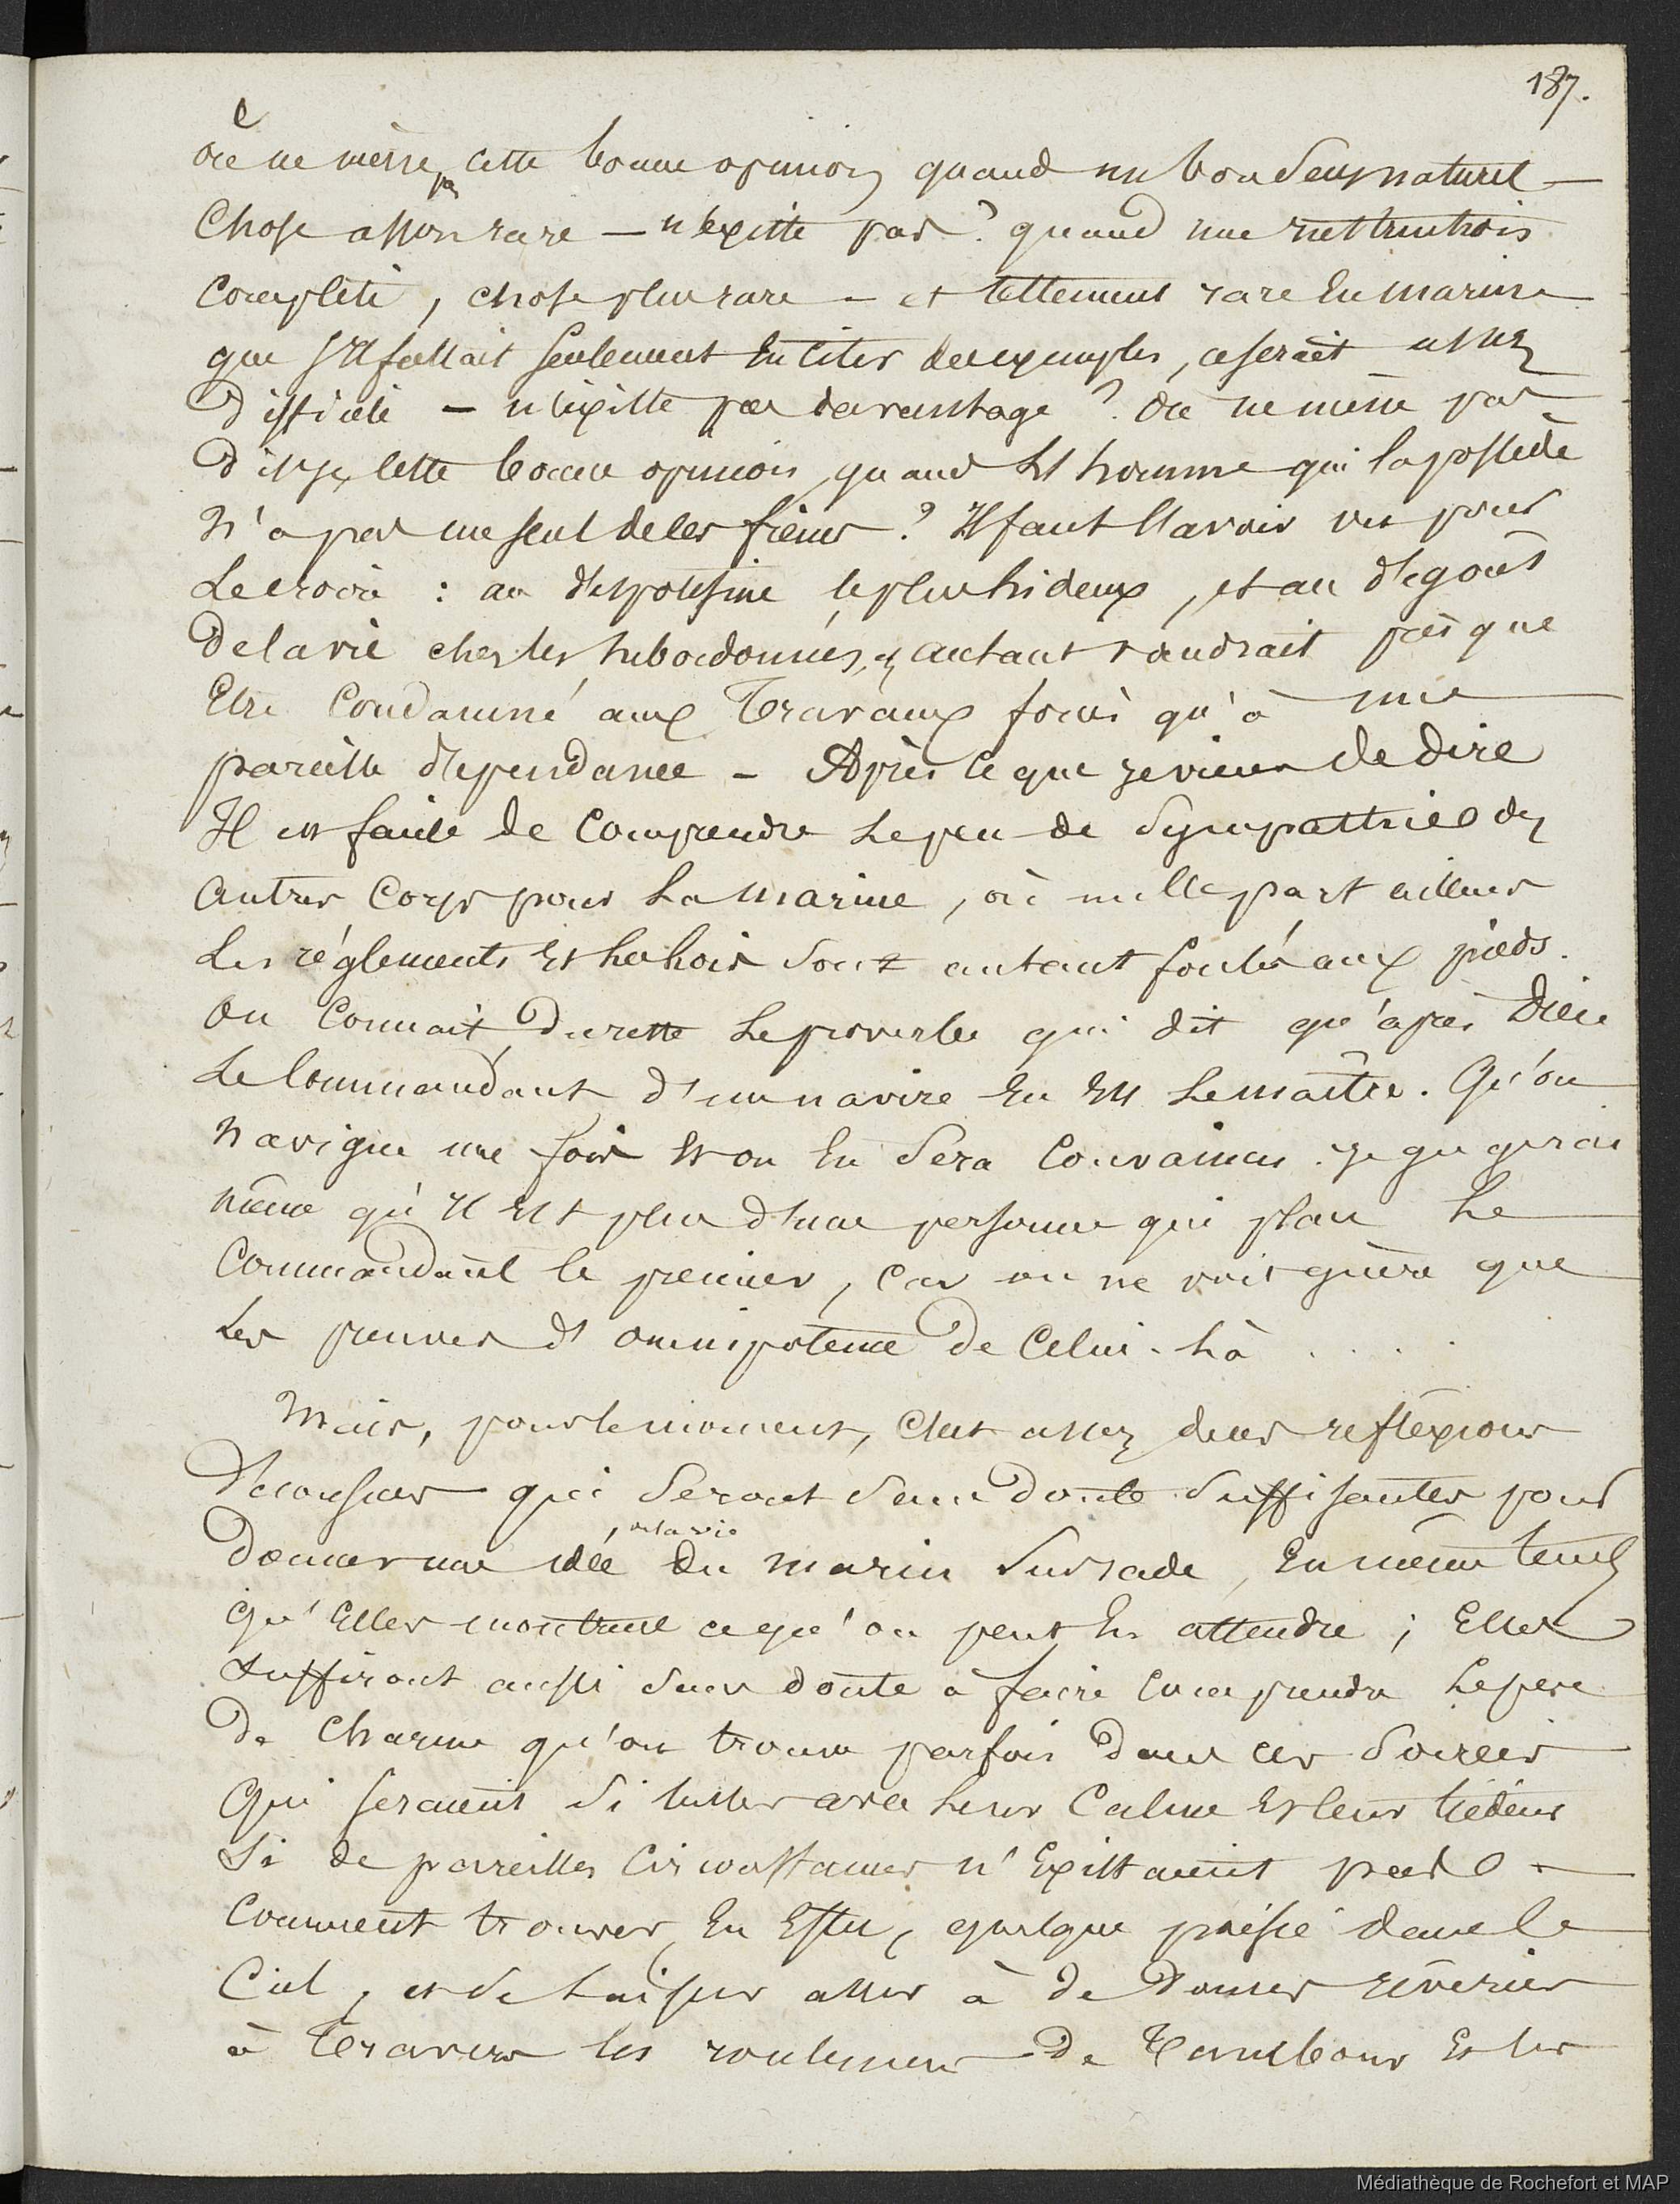 187.
où ne mène pas cette bonne opinion quand un bon sens naturel —
chose assez rare — n'existe pas ? quand une instruction
complète, chose plus rare — et tellement rare en marine
que s'il fallait seulement en citer des exemples, ce serait assez
difficile — n'existe pas davantage ? où ne mène pas
dis-je, cette bonne opinion, quand l'homme qui la possède
n'a pas un seul de ces freins ? Il faut l'avoir vu pour
le croire : au despotisme le plus hideux, et au dégoût
de la vie chez les subordonnés, autant vaudrait presque
être condamné aux travaux forcés qu'à une
pareille dépendance — Après ce que je viens de dire
Il est facile de comprendre le peu de sympathie des
autres corps pour la marine, où nulle part ailleurs
les réglements et les lois sont autant foulés aux pieds.
on connait du reste le proverbe qui dit qu'après Dieu
le Commandant d'un navire en est le maître. Qu'on
navigue une fois et on en sera convaincu. je gagerais
même qu'il est plus d'une personne qui place le
commandant le premier, car on ne voit guère que
les preuves d'omnipotence de celui-là . . . .
Mais, pour le moment, c'est assez de ces reflexions
décousues qui seront sans doute suffisantes pour
, et la vie
donner une idée du marin sur rade, en même temps
qu'elles montrent ce qu'on peut en attendre ; elles
suffiront aussi sans doute à faire comprendre le peu
de charme qu'on trouve parfois dans ces soirées
qui seraient si belles avec leur calme et leur tiédeur
si de pareilles circonstances n'existaient pas. —
comment trouver, en effet, quelque poésie dans le
Ciel, et se laisser aller à de douces rêveries
à travers les roulements de tambour et les
Médiathèque de Rochefort et MAP